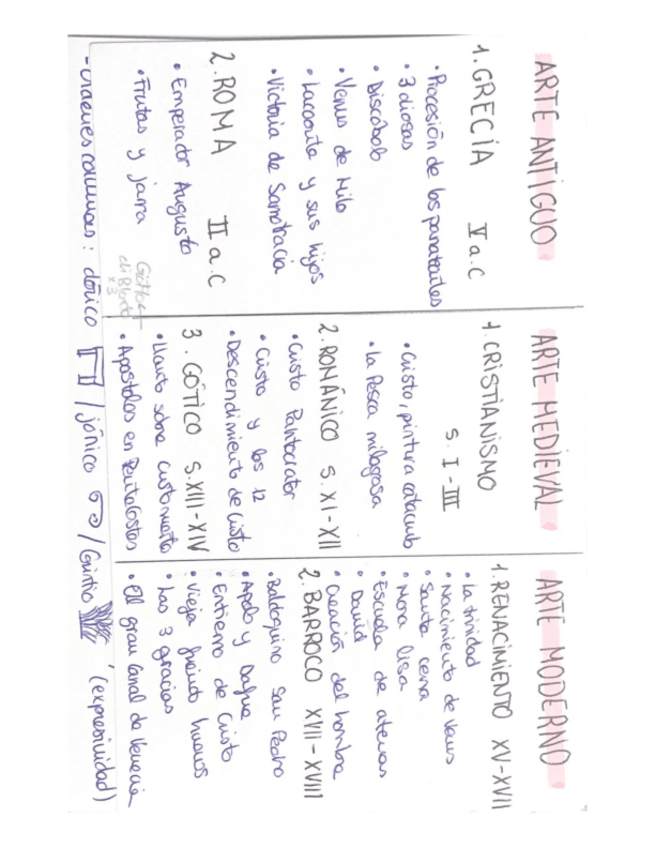 ARTE ANTIGUO
1. GRECIA V a.C
• Procesión de las panateneas
• 3 diosas
• Discóbolo
• Venus de Milo
• Lacoonte y sus hijos
• Victoria de Samotracia
2. ROMA II a.C
• Emperador Augusto
• Frutas y jarra
ARTE MEDIEVAL
1. CRISTIANISMO
S. I - III
• Cristo, pintura catacumb
• La Pesca milagrosa
2. ROMÁNICO S. XI - XII
• Cristo Pantocrator
• Cristo y los 12
• Descendimiento de Cristo
3. GÓTICO S. XIII - XIV
• Llanto sobre Cristo muerto
• Apostolos en Pentecostes
ARTE MODERNO
1. RENACIMIENTO XV - XVII
• La trinidad
• Nacimiento de Venus
• Santa cena
• Mona lisa
• Escuela de atenas
• David
• Creación del hombre
2. BARROCO XVII - XVIII
• Baldoquino San Pedro
• Apolo y Dafne
• Entierro de Cristo
• Vieja friendo huevos
• Las 3 gracias
• El gran Canal de Venecia
columnas: dórico / jónico / Corintio (expresividad)